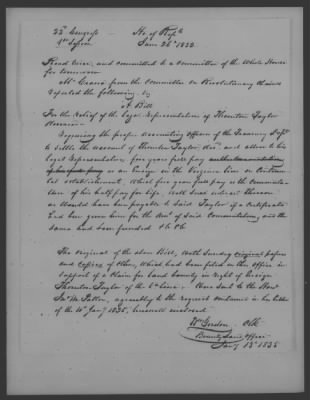 22d Congress Ho. of Reps
1st Session Jany 26th 1832.
Read twice, and committed to a Committee of the Whole House
for tomorrow
Mr. Crane from the Committee on Revolutionary Claims
reported the following, viz
A Bill
For the Relief of the Legal Representatives of Thornton Taylor
deceased
Requiring the proper accounting Officers of the Treasury Dept
to settle the account of Thornton Taylor, decd. and allow to his
Legal Representatives, five years full pay
as an Ensign in the Virginia Line on Continen-
tal establishment, which five years full pay is the commuta-
tion of his half pay for life, with such interest thereon
as would have been payable to said Taylor if a Certificate
had been given him for the amt of said Commutation, and the
same had been funded &c &c
The original of the above Bill, with sundry original papers
and copies of others, which had been filed in this office in
support of a Claim for Land bounty in right of Ensign
Thornton Taylor of the 6th Line, were sent to the Hon.
Jn. M. Patton, agreeably to the request contained in his letter
of the 10th Jany 1835, herewith enclosed
Wm Gordon Clk
Bounty Land Office
Jany 13th 1835